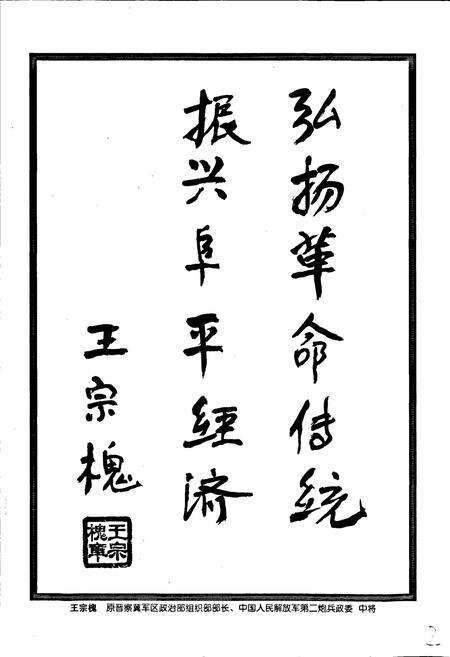 弘扬革命传统
振兴阜平經济
王宗槐
王宗槐章
王宗槐 原晋察冀军区政治部组织部部长、中国人民解放军第二炮兵政委 中将